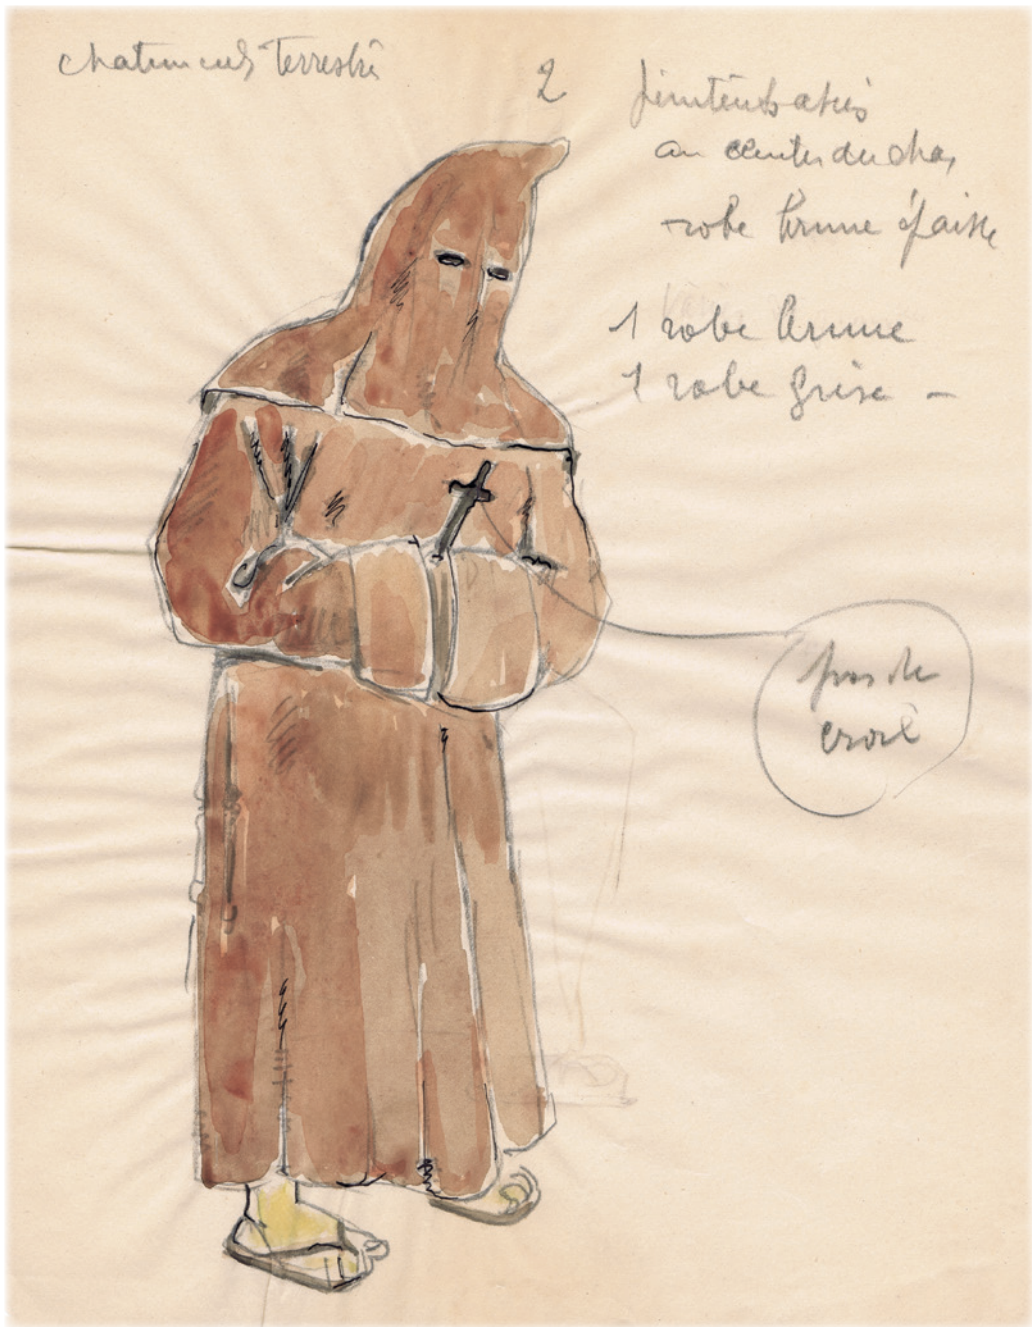 chatiments Terrestre
2
pénitents assis
au centre du char
robe brune épaisse
1 robe brune
1 robe grise -
pas de
croix